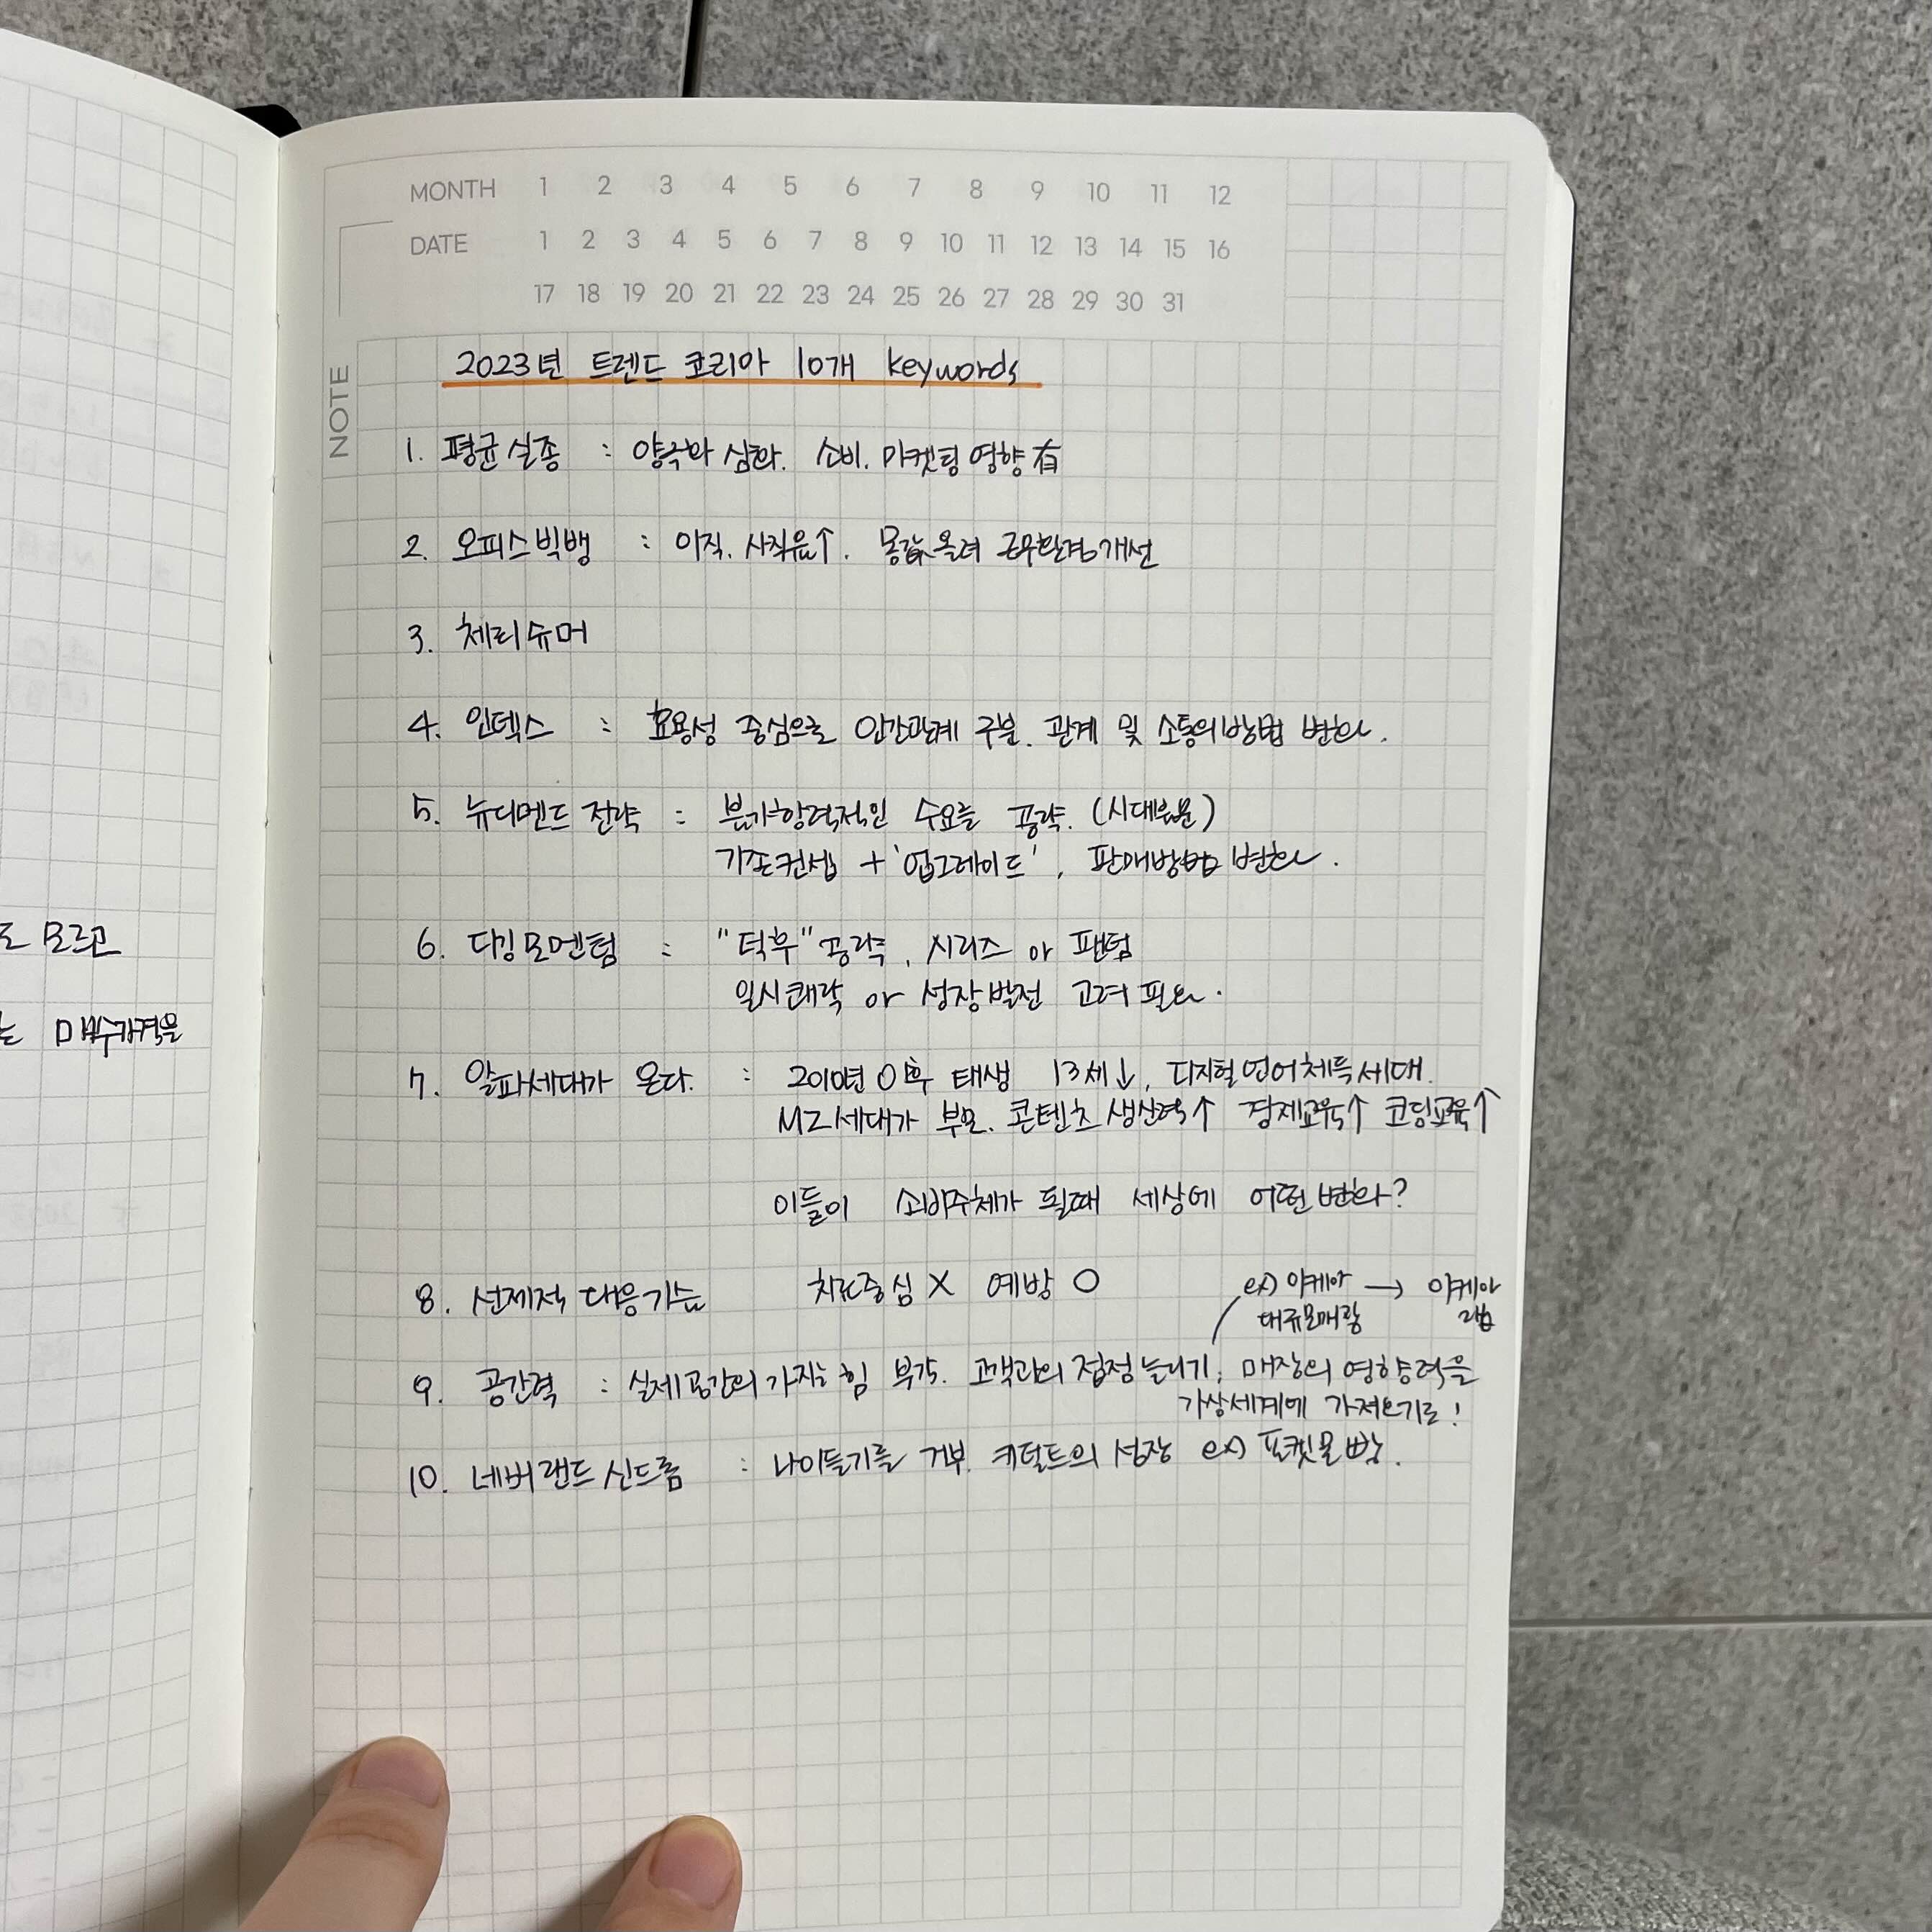 도 모르고
는 매수가격을
MONTH 1 2 3 4 5 6 7 8 9 10 11 12
DATE 1 2 3 4 5 6 7 8 9 10 11 12 13 14 15 16
17 18 19 20 21 22 23 24 25 26 27 28 29 30 31
NOTE
2023년 트렌드 코리아 10개 keywords
1. 평균실종 : 양극화 심화. 소비. 마켓팅 영향 有
2. 오피스빅뱅 : 이직. 사직율↑. 몸값올려 근무환경개선
3. 체리슈머
4. 인덱스 : 효용성 중심으로 인간관계 구분. 관계 및 소통의방법 변화.
5. 뉴디멘드 전략 : 불가항력적인 수요를 공략. (시대유문)
기존컨셉 + '업그레이드', 판매방법 변화.
6. 디깅모멘텀 : "덕후" 공략, 시리즈 or 팬덤
일시쾌락 or 성장발전 고려 필요.
7. 알파세대가 온다. : 2010년 이후 태생 13세↓, 디지털언어체득세대.
MZ세대가 부모. 콘텐츠 생산력↑ 경제교육↑ 코딩교육↑
이들이 소비주체가 될때 세상에 어떤변화?
8. 선제적 대응기술 치료중심 X 예방 O
ex) 이케아 → 이케아
대규모매장 랩
9. 공간력 : 실제공간의 가지는 힘 부각. 고객과의 접점 늘리기, 매장의 영향력을
가상세계에 가져오기로!
10. 네버랜드 신드롬 : 나이들기를 거부. 키덜트의 성장 ex) 포켓몬빵.